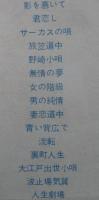 影を慕いて
君恋し
サーカスの唄
旅笠道中
野崎小唄
無情の夢
女の階級
男の純情
妻恋道中
青い背広で
流転
裏町人生
大江戸出世小唄
波止場気質
人生劇場